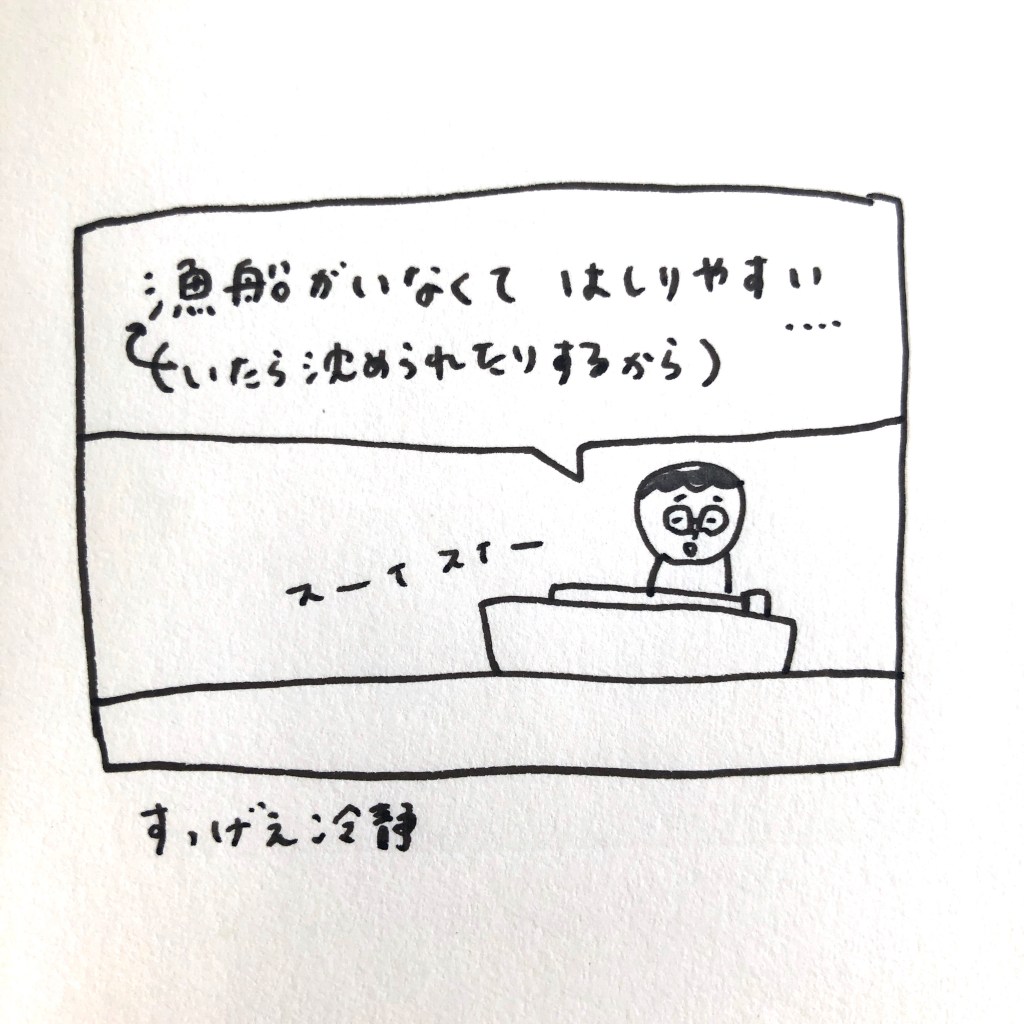 漁船がいなくて はしりやすい
‥‥
(いたら沈められたりするから)
スーイスイー
すっげえ冷静